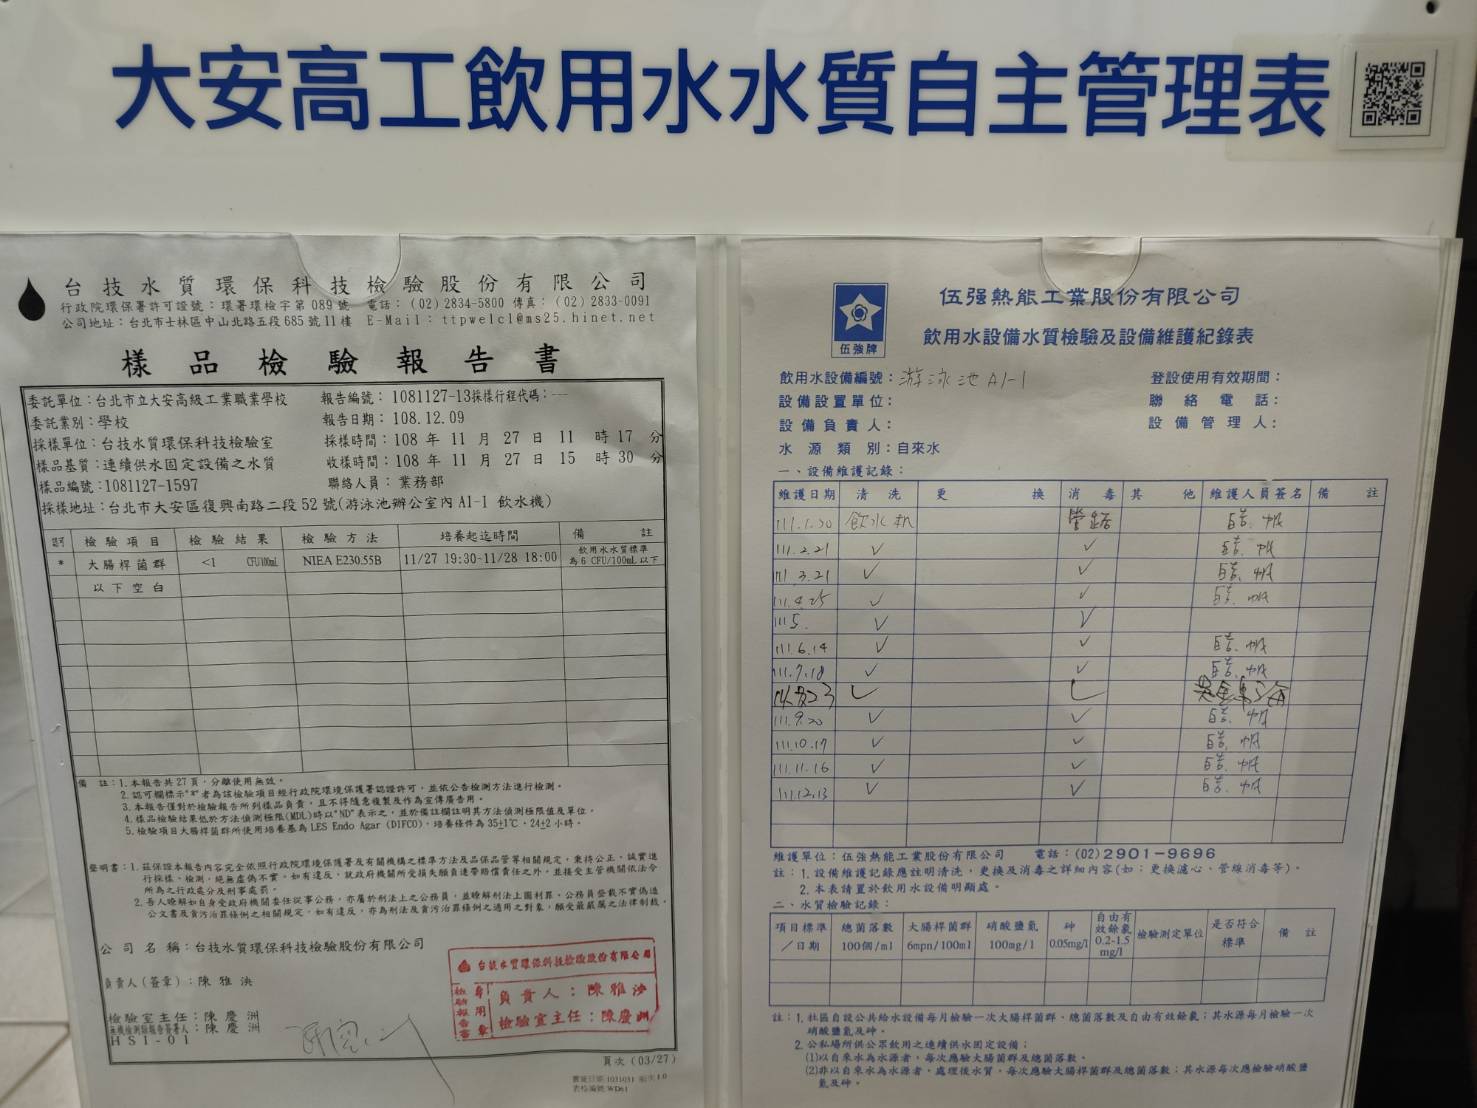 大安高工飲用水水質自主管理表
台技水質環保科技檢驗股份有限公司
行政院環保署許可證號：環署環檢字第089號 電話：(02)2834-5800 傳真：(02)2833-0091
公司地址：台北市士林區中山北路五段685號11樓 E-Mail：ttpwelcl@ms25.hinet.net
樣品檢驗報告書
委託單位：台北市立大安高級工業職業學校 報告編號：1081127-13採樣行程代碼：---
委託業別：學校 報告日期：108.12.09
採樣單位：台技水質環保科技檢驗室 採樣時間：108 年 11 月 27 日 11 時 17 分
樣品基質：連續供水固定設備之水質 收樣時間：108 年 11 月 27 日 15 時 30 分
樣品編號：1081127-1597 聯絡人員：業務部
採樣地址：台北市大安區復興南路二段52號(游泳池辦公室內A1-1 飲水機)
認可 檢驗項目 檢驗結果 檢驗方法 培養起迄時間 備註
* 大腸桿菌群 <1 CFU/100mL NIEA E230.55B 11/27 19:30-11/28 18:00 飲用水水質標準為6 CFU/100mL以下
以下空白
備註：1.本報告共27頁，分離使用無效。
2.認可欄標示"*"者為該檢驗項目經行政院環境保護署認證許可，並依公告檢測方法進行檢測。
3.本報告僅對於檢驗報告所列樣品負責，且不得隨意複製及作為宣傳廣告用。
4.樣品檢驗結果低於方法偵測極限(MDL)時以"ND"表示之，並於備註欄註明其方法偵測極限值及單位。
5.檢驗項目大腸桿菌群所使用培養基為LES Endo Agar (DIFCO)，培養條件為35±1℃，24±2小時。
聲明書：1.茲保證本報告內容完全依照行政院環境保護署及有關機構之標準方法及品保品管等相關規定，秉持公正、誠實進
行採樣、檢測，絕無虛偽不實。如有違反，就政府機關所受損失願負連帶賠償責任之外，並接受主管機關依法令
所為之行政處分及刑事處罰。
2.吾人瞭解如自身受政府機關委任從事公務，亦屬於刑法上之公務員，並瞭解刑法上圖利罪、公務員登載不實偽造
公文書及貪污治罪條例之相關規定，如有違反，亦為刑法及貪污治罪條例之適用之對象，願受最嚴厲之法律制裁。
公司名稱：台技水質環保科技檢驗股份有限公司
負責人(簽章)：陳雅泱
檢驗室主任：陳慶洲
無機檢測類報告簽署人：陳慶洲
HSI-01
台技水質環保科技檢驗股份有限公司
檢驗報告專用章
負責人：陳雅泱
檢驗室主任：陳慶洲
頁次 (03/27)
伍強牌
伍强熱能工業股份有限公司
飲用水設備水質檢驗及設備維護紀錄表
飲用水設備編號：游泳池A1-1 登設使用有效期間：
設備設置單位： 聯絡電話：
設備負責人： 設備管理人：
水源類別：自來水
一、設備維護記錄：
維護日期 清洗 更換 消毒 其他 維護人員簽名 備註
111.1.20 飲水机 管路
111.2.21 ✓ ✓
111.3.21 ✓ ✓
111.4.25 ✓ ✓
111.5. ✓ ✓
111.6.14 ✓ ✓
111.7.18 ✓ ✓
✓ ✓
111.9.20 ✓ ✓
111.10.17 ✓ ✓
111.11.16 ✓ ✓
111.12.13 ✓ ✓
維護單位：伍強熱能工業股份有限公司 電話：(02)2901-9696
註：1.設備維護記錄應註明清洗，更換及消毒之詳細內容(如：更換濾心、管線消毒等)。
2.本表請置於飲用水設備明顯處。
二、水質檢驗記錄：
項目標準／日期 總菌落數 100個/ml 大腸桿菌群 6mpn/100ml 硝酸鹽氮 100mg/l 砷 0.05mg/l 自由有效餘氯 0.2-1.5 mg/l 檢驗測定單位 是否符合標準 備註
註：1.社區自設公共給水設備每月檢驗一次大腸桿菌群、總菌落數及自由有效餘氯；其水源每月檢驗一次
硝酸鹽氮及砷。
2.公私場所供公眾飲用之連續供水固定設備：
(1)以自來水為水源者，每次應驗大腸桿菌群及總菌落數。
(2)非以自來水為水源者，處理後水質，每次應驗大腸桿菌群及總菌落數；其水源每次應檢驗硝酸鹽
氮及砷。